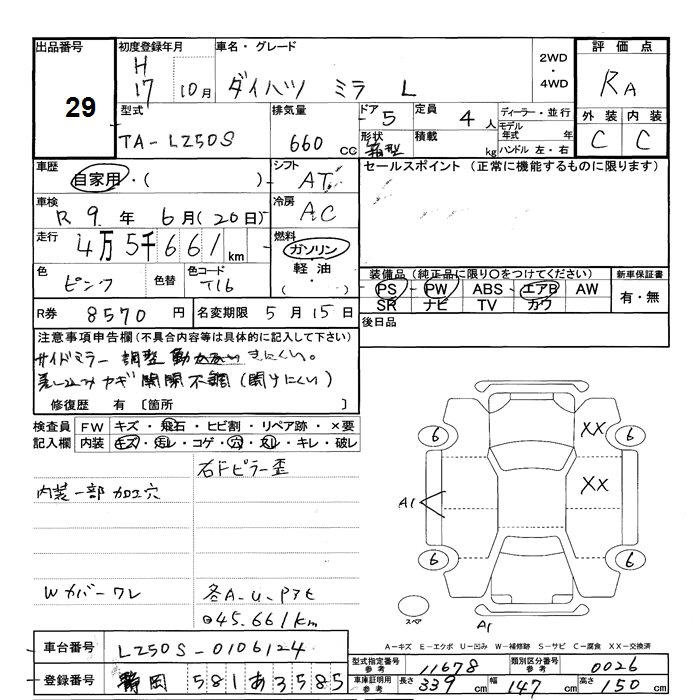 出品番号
29
初度登録年月
H
17 10月
車名・グレード
ダイハツ ミラ L
2WD
・
4WD
評価点
RA
外装 内装
C C
型式
TA-L250S
排気量
660 cc
ドア 5
形状
箱型
定員 4 人
積載 kg
ディーラー・並行
モデル
年式 年
ハンドル 左・右
車歴
自家用・( )
シフト
AT
車検
R 9. 年 6月(20日)
冷房
AC
走行
4万5千661km
燃料
ガソリン
・
軽油
・( )
色
ピンク
色替
色コード
T16
R券 8570 円
名変期限 5月15日
セールスポイント (正常に機能するものに限ります)
装備品 (純正品に限り○をつけてください)
PS・PW・ABS・エアB・AW
SR ナビ TV カワ
新車保証書
有・無
後日品
注意事項申告欄(不具合内容等は具体的に記入して下さい)
サイドミラー 調整 きにくい。
差し込みカギ 開閉不調(開けにくい)
修復歴 有 〔箇所 〕
検査員
記入欄
FW キズ・飛石・ヒビ割・リペア跡・×要
内装 キズ・汚レ・コゲ・穴・スレ・キレ・破レ
右ドピラー歪
内装一部加工穴
Wカバーワレ
冬A-U-Pアセ
◎45.661km
6
6
6
6
XX
XX
A1
A1
スペア
A-キズ E-エクボ U-凹み W-補修跡 S-サビ C-腐食 XX-交換済
車台番号 L250S-0106124
登録番号 静岡 581あ3585
型式指定番号
参考
11678
類別区分番号
参考
0026
車庫証明用
参考
長さ 339cm 幅 147cm 高さ 150cm